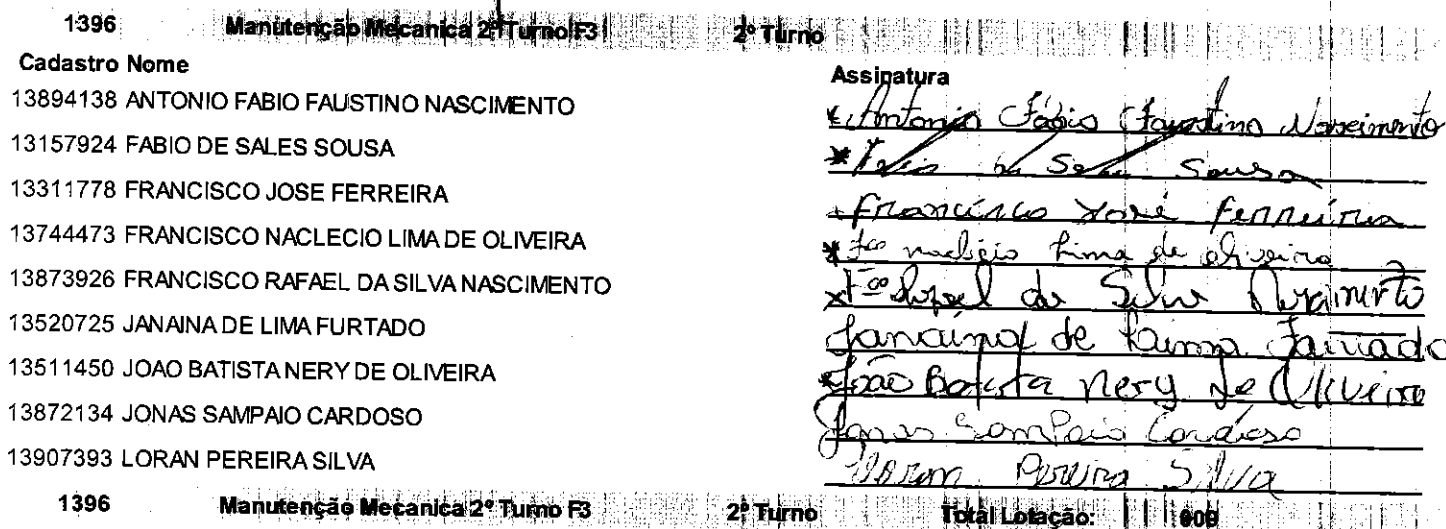 1396 Manutenção Mecanica 2º Turno F3 2º Turno
Cadastro Nome Assinatura
13894138 ANTONIO FABIO FAUSTINO NASCIMENTO Antonio Fábio Faustino Nascimento
13157924 FABIO DE SALES SOUSA Sousa
13311778 FRANCISCO JOSE FERREIRA Francisco José Ferreira
13744473 FRANCISCO NACLECIO LIMA DE OLIVEIRA Fco naclécio Lima de oliveira
13873926 FRANCISCO RAFAEL DA SILVA NASCIMENTO Fco Rafael da Silva
13520725 JANAINA DE LIMA FURTADO Janaina de Lima Furtado
13511450 JOAO BATISTA NERY DE OLIVEIRA João Batista Nery de Oliveira
13872134 JONAS SAMPAIO CARDOSO Jonas Sampaio Cardoso
13907393 LORAN PEREIRA SILVA Loran Pereira Silva
1396 Manutenção Mecanica 2º Turno F3 2º Turno Total Lotação: 009